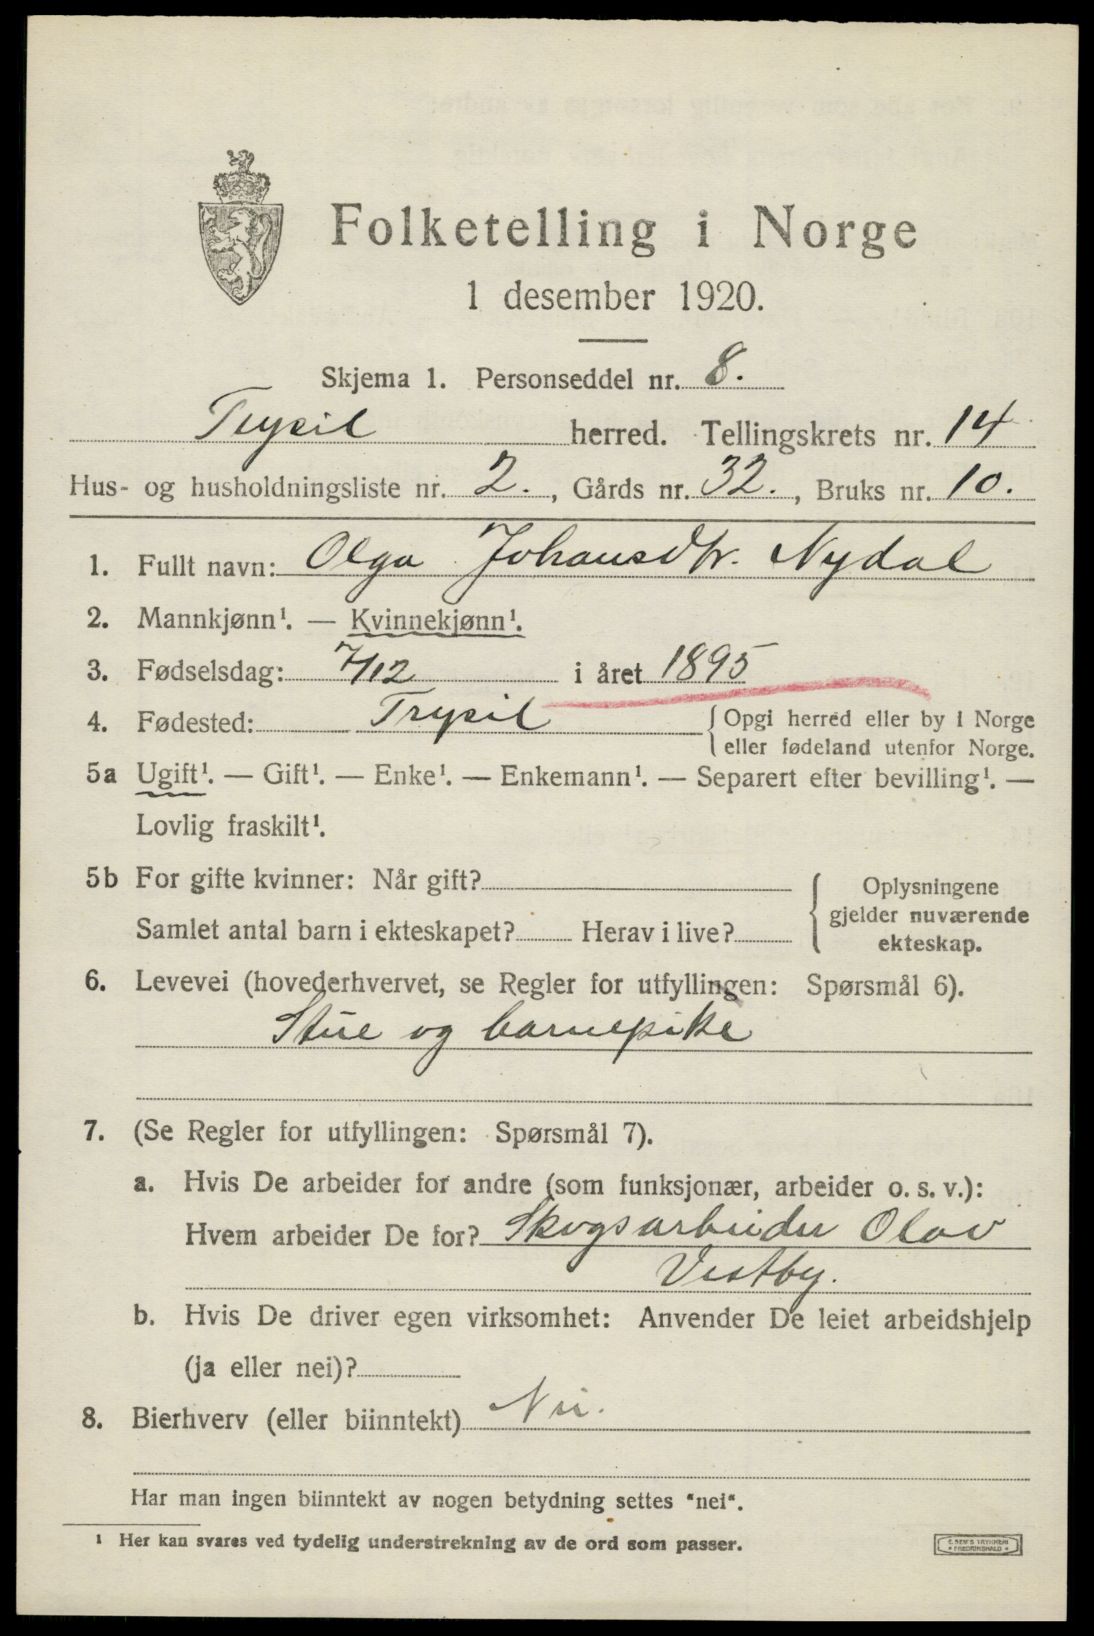 Folketelling i Norge
1 desember 1920.
Skjema 1. Personseddel nr. 8.
Trysil herred. Tellingskrets nr. 14
Hus- og husholdningsliste nr. 2., Gårds nr. 32., Bruks nr. 10.
1. Fullt navn: Olga Johansdtr. Nydal
2. Mannkjønn¹. — Kvinnekjønn¹.
3. Fødselsdag: 7/12 i året 1895
4. Fødested: Trysil { Opgi herred eller by i Norge
eller fødeland utenfor Norge.
5a Ugift¹. — Gift¹. — Enke¹. — Enkemann¹. — Separert efter bevilling¹. —
Lovlig fraskilt¹.
5b For gifte kvinner: Når gift? { Oplysningene
gjelder nuværende
Samlet antal barn i ekteskapet? Herav i live?
ekteskap.
6. Levevei (hovederhvervet, se Regler for utfyllingen: Spørsmål 6).
Stue og barnepike
7. (Se Regler for utfyllingen: Spørsmål 7).
a. Hvis De arbeider for andre (som funksjonær, arbeider o. s. v.):
Hvem arbeider De for? Skogsarbeider Olav
Vestby.
b. Hvis De driver egen virksomhet: Anvender De leiet arbeidshjelp
(ja eller nei)?
8. Bierhverv (eller biinntekt) Nei.
Har man ingen biinntekt av nogen betydning settes "nei".
¹ Her kan svares ved tydelig understrekning av de ord som passer.
E. SEM'S TRYKKERI
FREDRIKSHALD